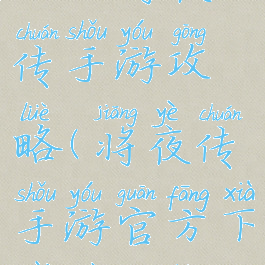 chuán shǒu yóu gōng
传手游攻
lüè jiāng yè chuán
略(将夜传
shǒu yóu guān fāng xià
手游官方下